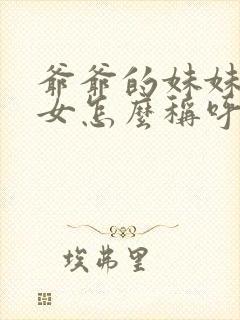 爺爺的妹妹
女怎麼稱呼
埃弗里